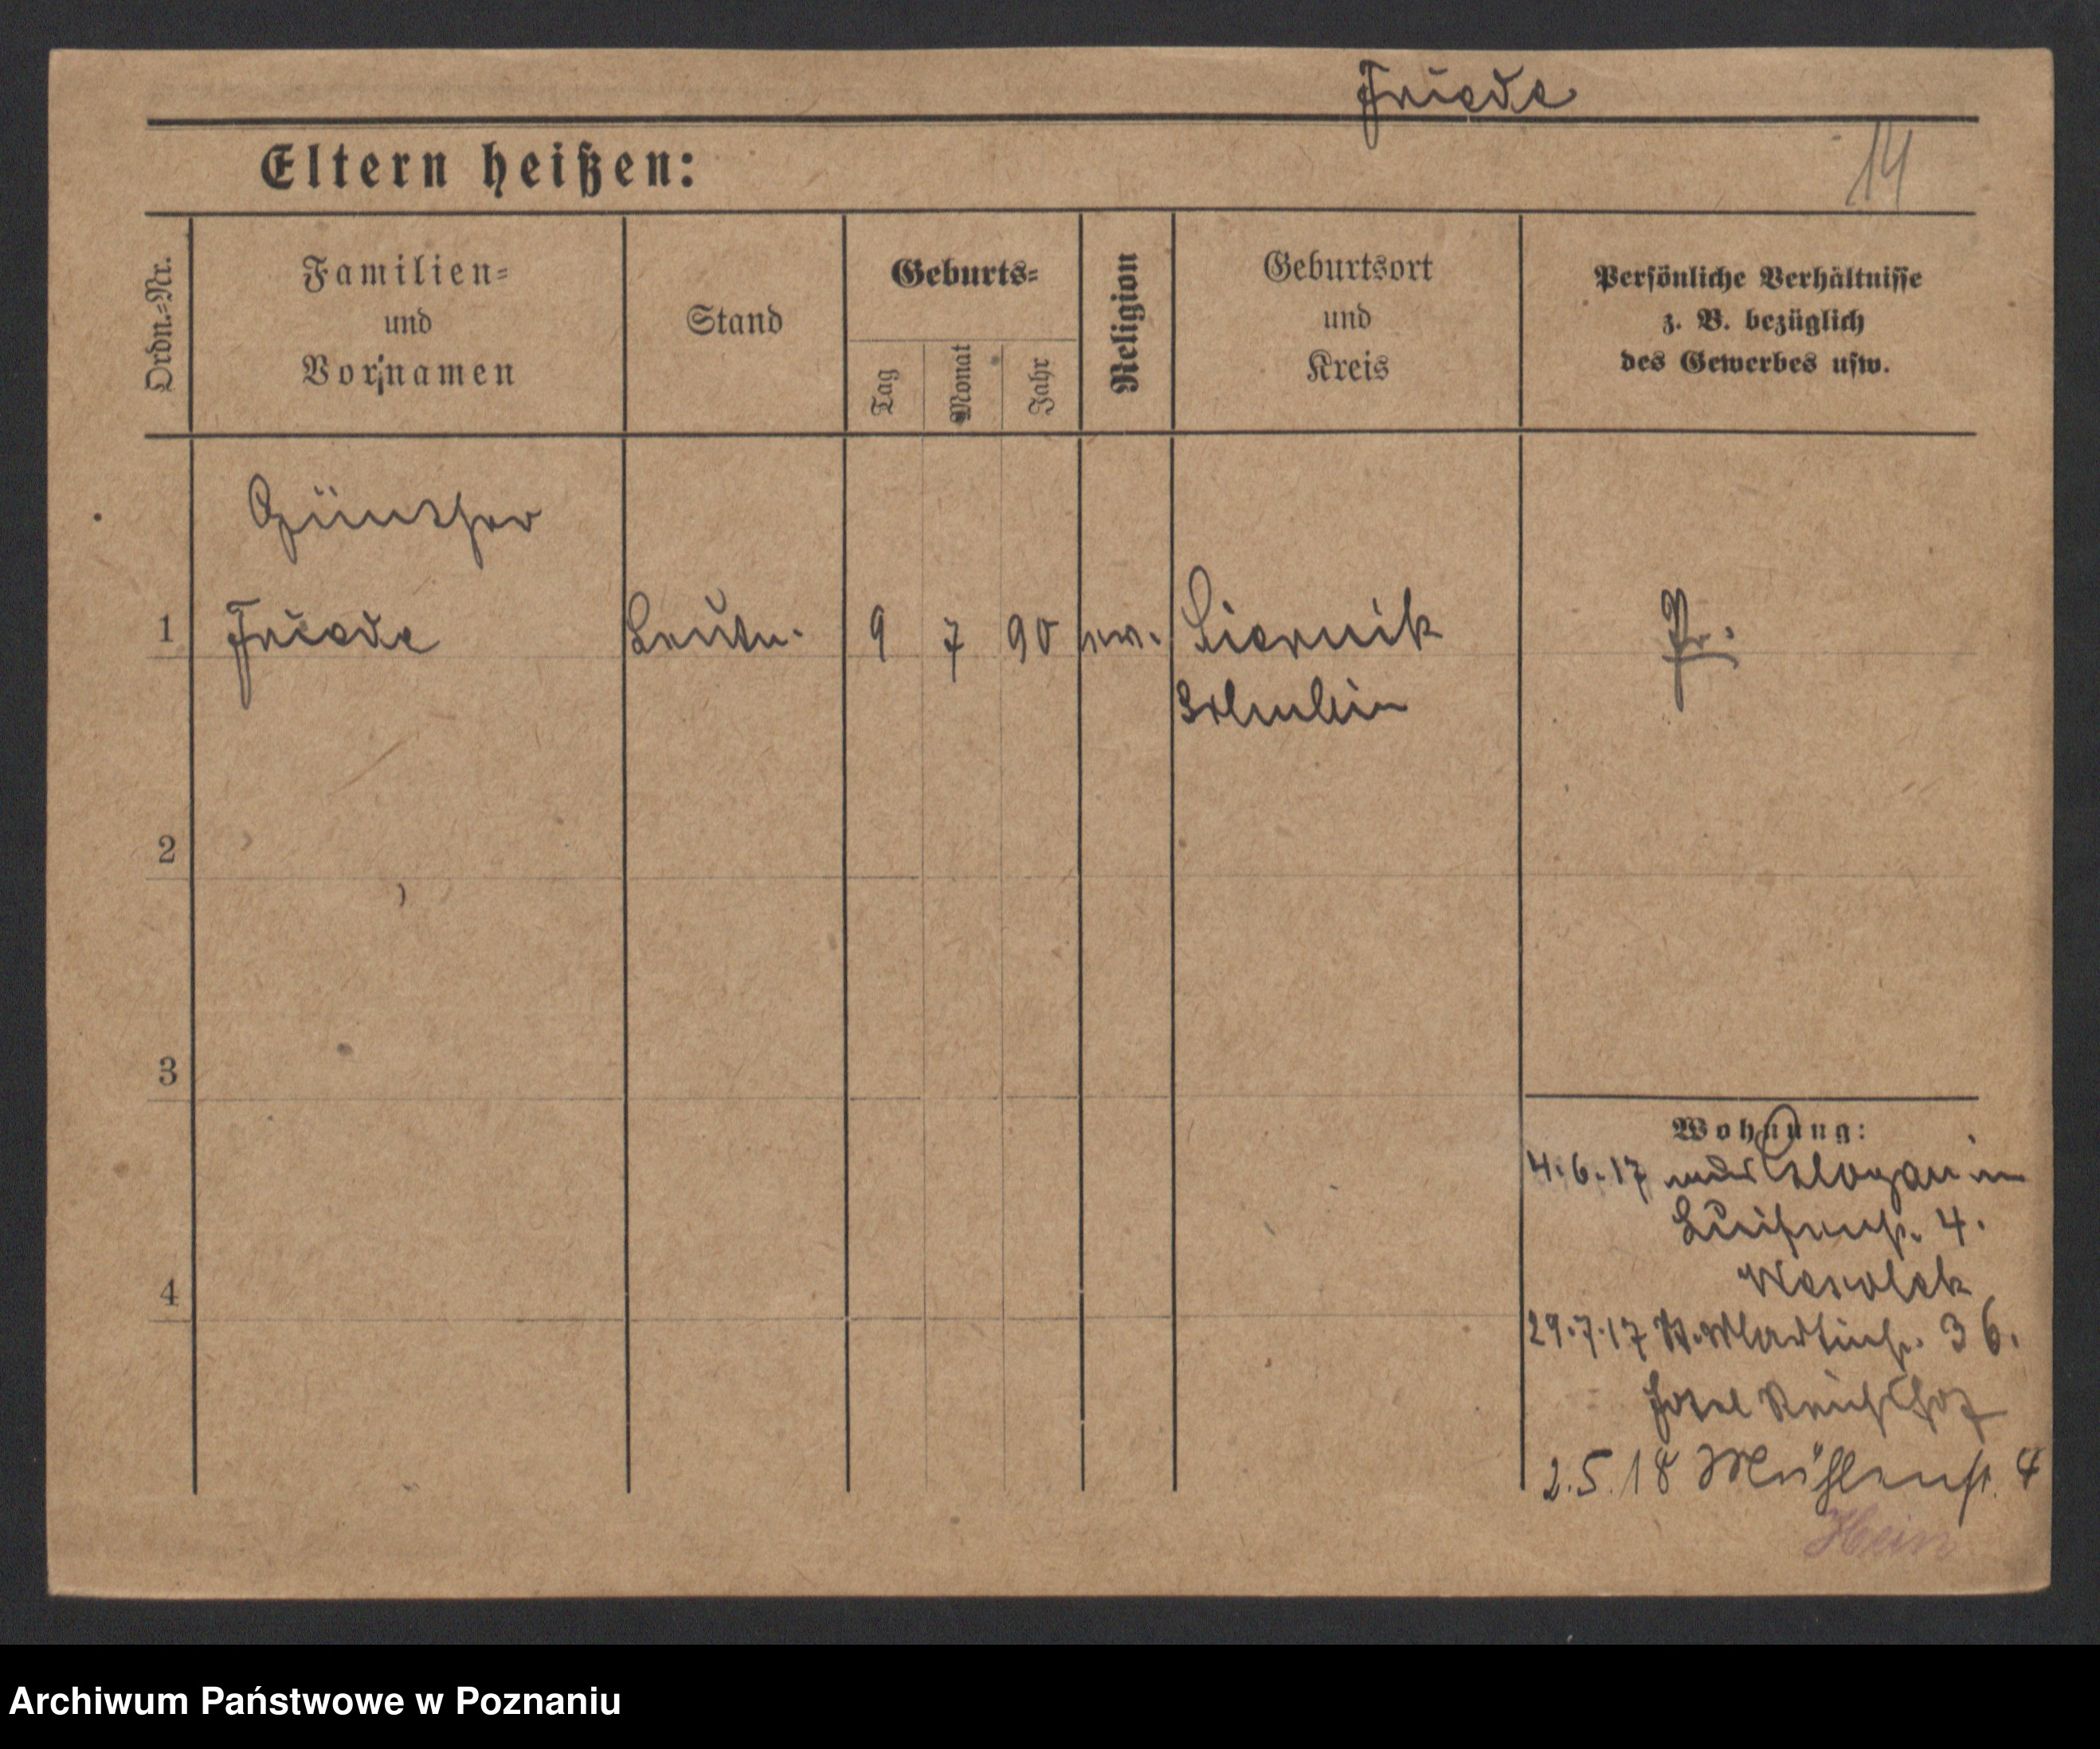 Friede
14
Eltern heißen:
Ordn.=Nr.
Familien=
und
Vornamen
Stand
Geburts=
Tag
Monat
Jahr
Religion
Geburtsort
und
Kreis
Persönliche Verhältnisse
z. B. bezüglich
des Gewerbes usw.
Günther
1 Friede Leutn. 9 7 90 ev. Siernik
Schubin
Pr.
2
3
4
Wohnung:
4.6.17 Glogau in
Luisenstr. 4.
29.7.17 St. Martinstr. 36.
Hotel Reichshof
2.5.18 Mühlenst. 4
Hein
Archiwum Państwowe w Poznaniu